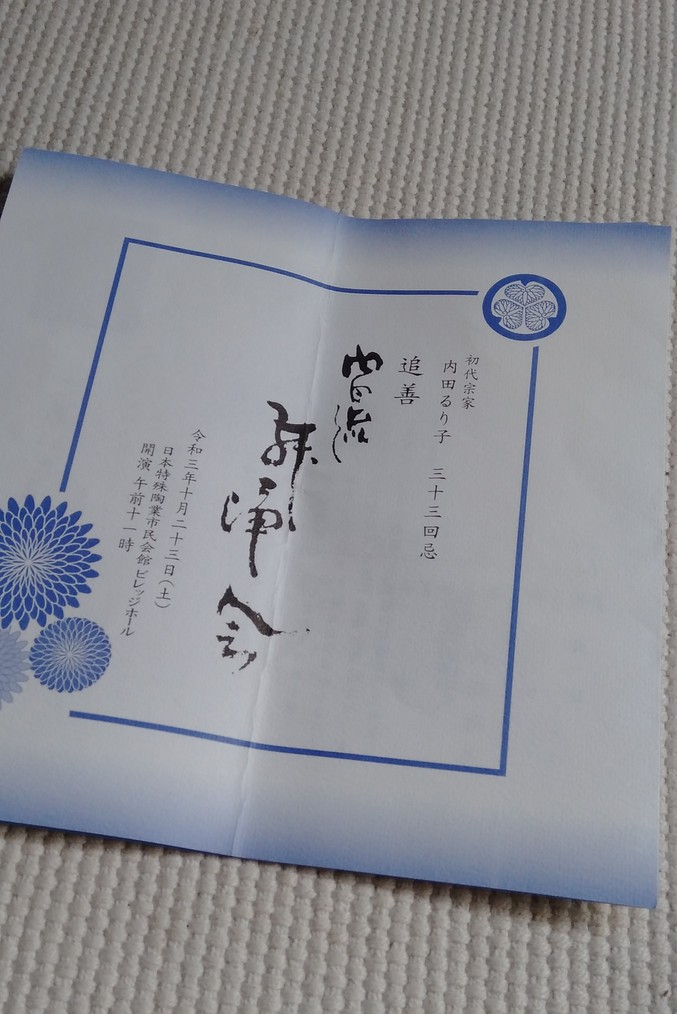 初代宗家
内田るり子 三十三回忌
追善
内田流
会
令和三年十月二十三日(土)
日本特殊陶業市民会館 ビレッジホール
開演 午前十一時